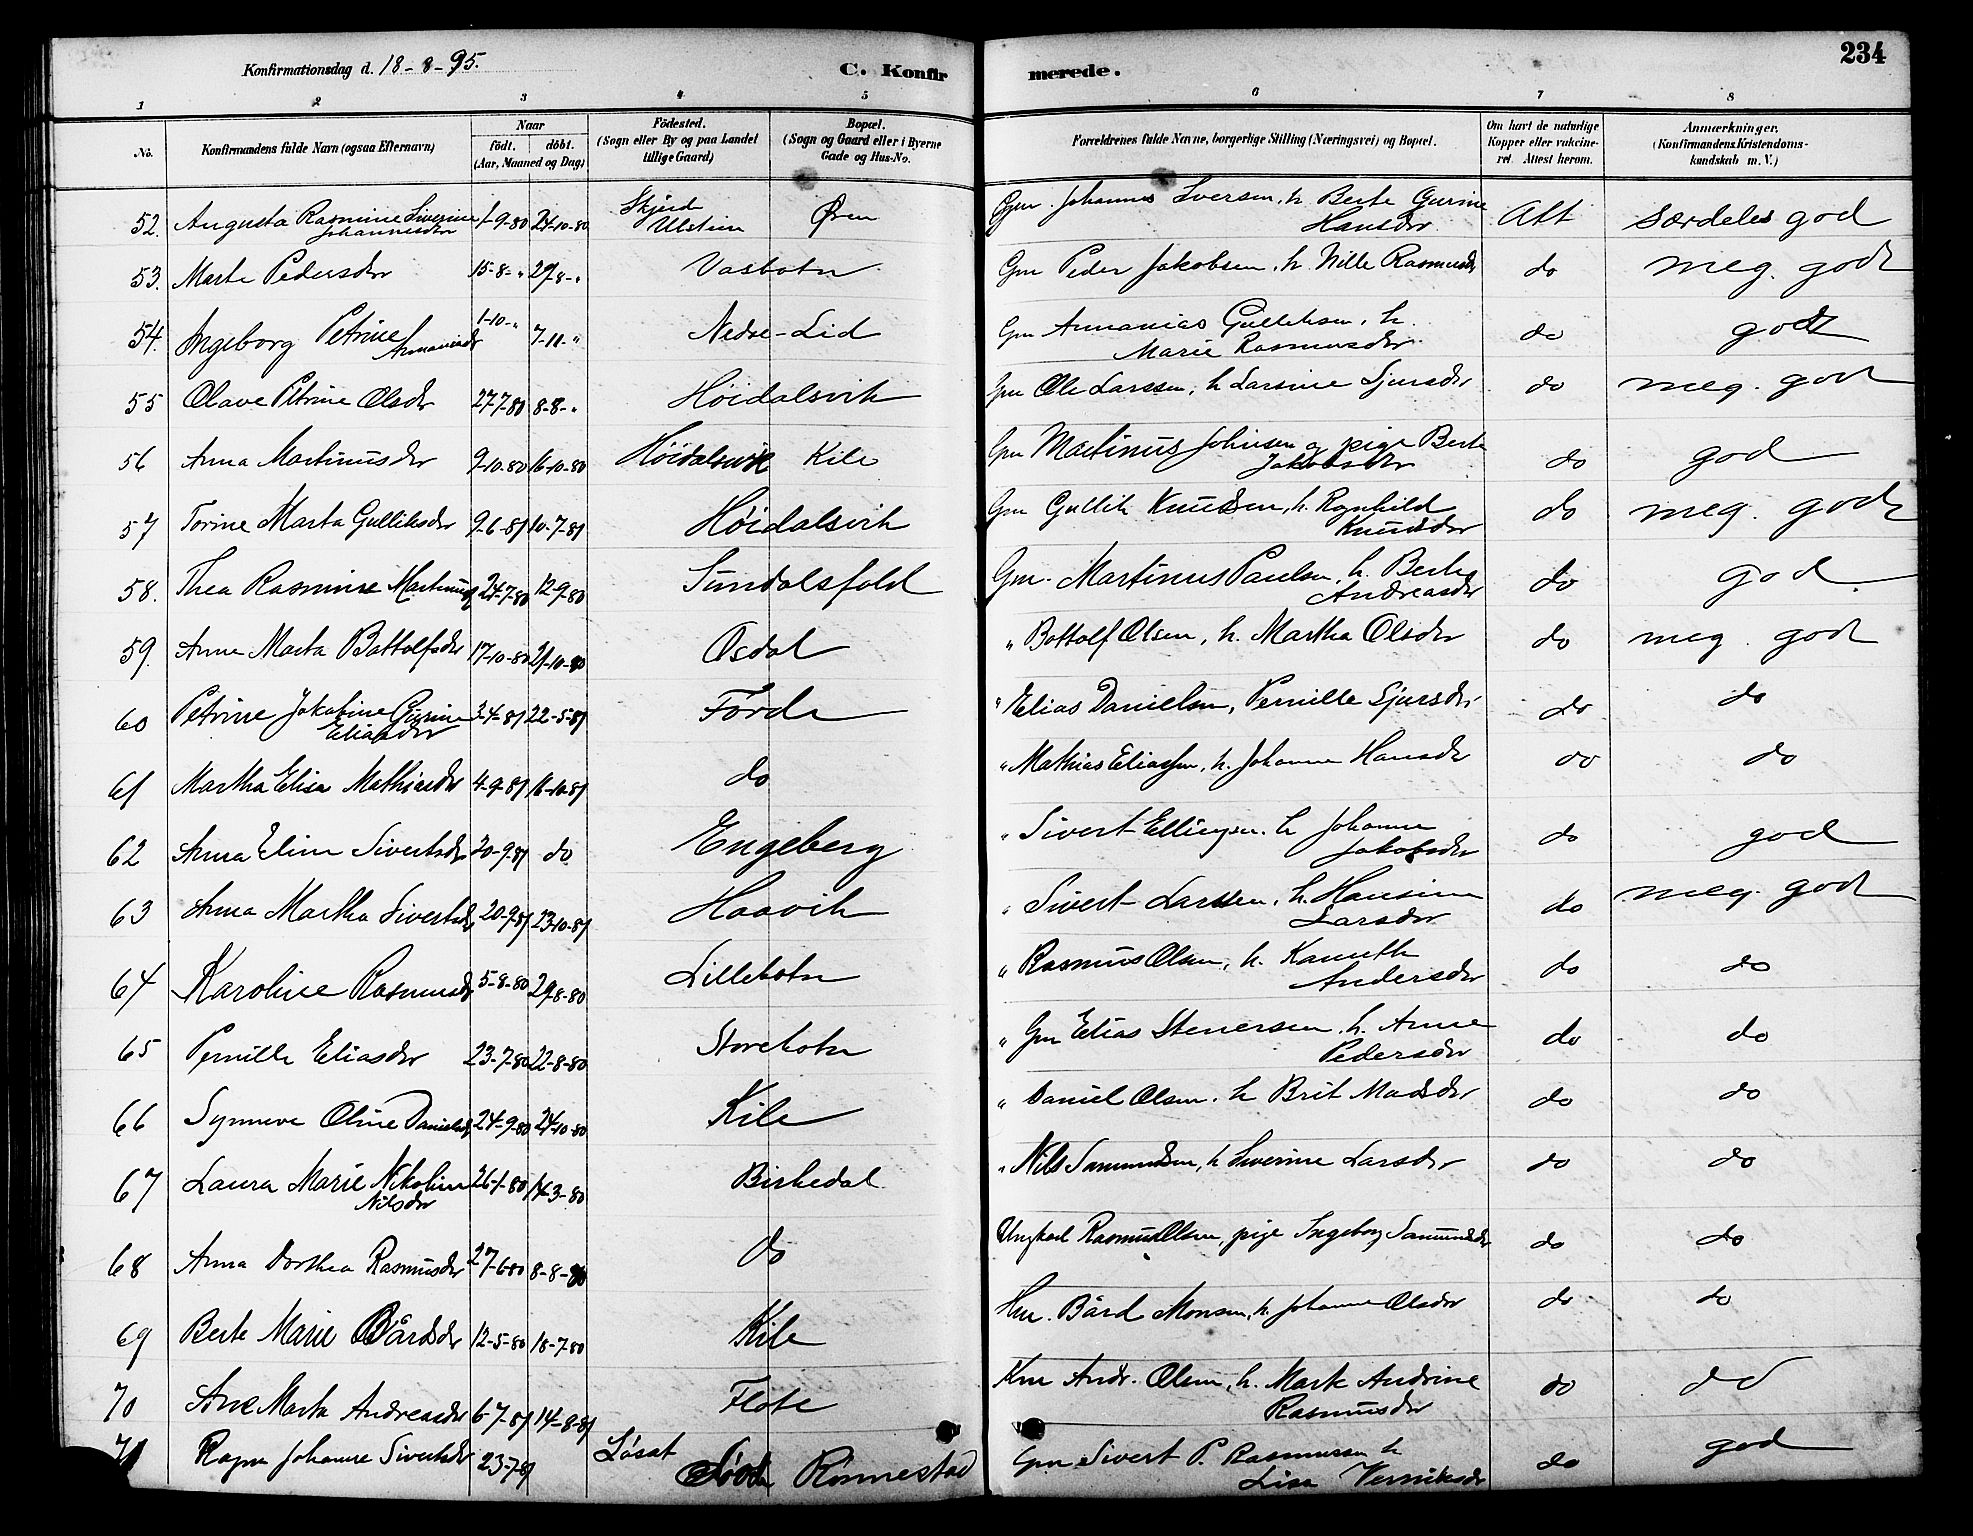 234
Konfirmationsdag d. 18-8-95.
C. Konfirmerede.
1 2 3 4 5 6 7 8
No.
Konfirmandens fulde Navn (ogsaa Efternavn)
Naar
födt. döbt.
(Aar, Maaned og Dag)
Födested.
(Sogn eller By og paa Landet tillige Gaard)
Bopæl.
(Sogn og Gaard eller i Byerne Gade og Hus-No.
Forældrenes fulde Navne, borgerlige Stilling (Næringsvei) og Bopæl.
Om havt de naturlige Kopper eller vakcineret. Attest herom.
Anmærkninger.
(Konfirmandens Kristendomskundskab m. V.)
52. Augusta Rasmine Severine Johannesdr 1-9-80 24-10-80 Ulstein Ören Gm. Johannes Iversen, h. Berte Gurine Hansdr Att særdeles god
53. Marte Pedersdr 15-8-" 29-8-" Vasbotn Gm Peder Jakobsen, h. Nille Rasmusdr do meg. godt
54. Ingeborg Petrine Annaniasdr 1-10-" 7-11-" Nedre-Lid Gm Annanias Gulliksen, h. Marie Rasmusdr. do godt
55 Olave Petrine Olsdr 27-7-80 8-8-" Höidalsvik Gm Ole Larssen, h Larsine Sjursdr do meg. god
56 Anna Martinusdr 9-10-80 16-10-80 Höidalsvik Kile Gm Martinus Johnsen og pige Berte Jakobsdr do god
57 Torine Marta Gulliksdr 9-6-81 10-7-81 Höidalsvik Gm Gullik Knudsen, h. Ragnhild Knudsdr do meg. godt
58. Thea Rasmine Martinusdr 24-7-80 12-9-80 Sundalsfold Gm. Martinus Paulsen, h. Berte Andreasdr do god
59. Anne Marta Bottolfsdr 17-10-80 21-10-80 Osdal " Bottolf Olsen, h. Martha Olsdr do meg god
60 Petrine Jakobine Gurine Eliasdr 3-4-81 22-5-81 Förde " Elias Danielsen, Pernille Sjursdr do do
61 Martha Elise Mathiasdr 4-9-81 16-10-81 do " Mathias Eliassen, h. Johanne Hansdr do do
62 Anna Eline Sivertsdr 20-9-81 do Engeberg " Sivert Ellingsen. h Johanne Jakobsdr do god
63 Anna Martha Sivertsdr 20-9-81 23-10-81 Haavik " Sivert Larssen, h. Hansine Larsdr do meg. god
64 Karoline Rasmusdr 5-8-80 29-8-80 Lillebotn " Rasmus Olsen, h. Andersdr do do
65 Pernille Eliasdr 23-7-80 22-8-80 Storebotn " Gm Elias Stenersen. h. Anne Pedersdr do do
66 Synneve Oline Danielsdr 24-9-80 24-10-80 Kile " Daniel Olsen. h Brit Madsdr do do
67 Laura Marie Nikoline Nilsdr 26-1-80 14-3-80 Birkedal " Nils Samundsen, h Severine Larsdr do do
68 Anna Dorthea Rasmusdr 27-6-80 8-8-80 do Ungkarl Rasmus Olsen, pige Ingeborg Samundsdr do do
69 Berte Marie Bårdsdr 12-5-80 18-7-80 Kile Hm. Bård Monsen, h. Johanne Olsdr do do
70 Ane Marta Andreasdr 6-7-81 14-8-81 Flote Km Andr. Olsen, h. Marte Andrine Rasmusdr do do
71 Ragna Johanne Sivertsdr 23-7-81 Rönnestad Gm Sivert P. Rasmussen h Lisa do god